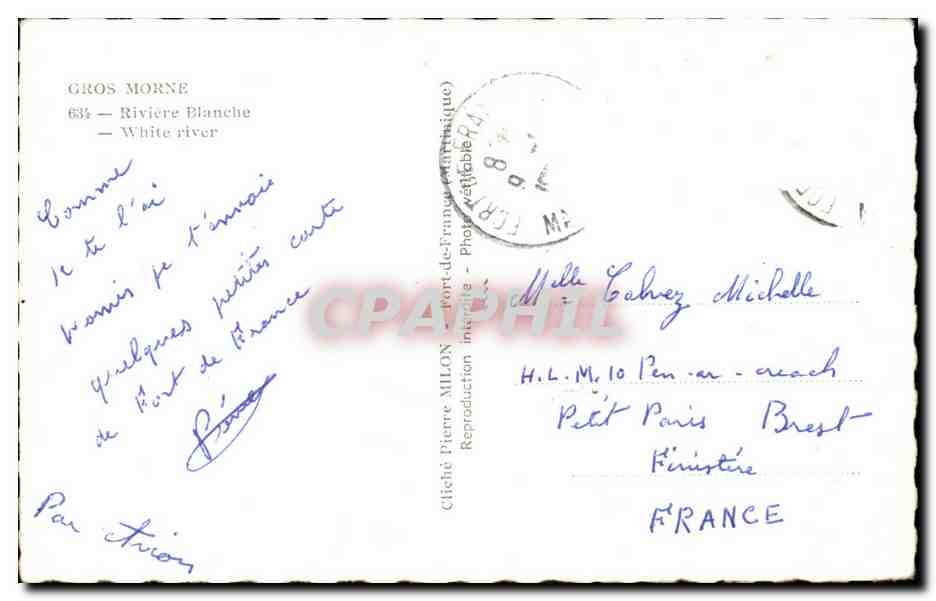 GROS MORNE
63½ — Rivière Blanche
— White river
Comme
je te l'ai
promis je t'envoie
quelques petites carte
de Fort de France
Par Avion
Cliché Pierre MILON - Fort-de-France (Martinique)
Reproduction interdite - Photo véritable
CPAPHIL
FORT DE FRANCE
8
9
MA
FOR
M
Melle Calvez Michelle
H.L.M. 10 Pen-ar-creach
Petit Paris Brest
Finistère
FRANCE